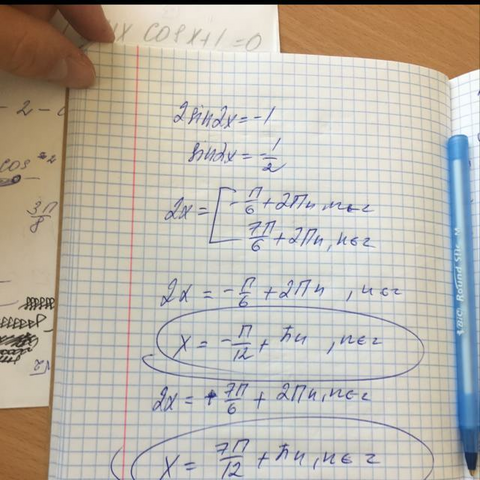 cos x+1=0
2sin2x=-1
sin2x=-1/2
2x=[-π/6+2πn, n∈z
7π/6+2πn, n∈z
2x=-π/6+2πn, n∈z
x=-π/12+πn, n∈z
2x=+7π/6+2πn, n∈z
x=7π/12+πn, n∈z
- 2 -
cos
3π/8
√2
BIC Round Stic M